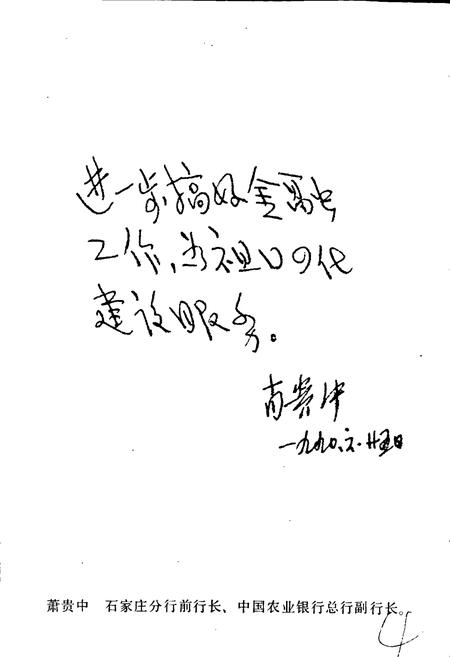 进一步搞好金融
工作，为祖国四化
建设服务。
肖贵中
一九九〇.六.廿五日
萧贵中　石家庄分行前行长、中国农业银行总行副行长。